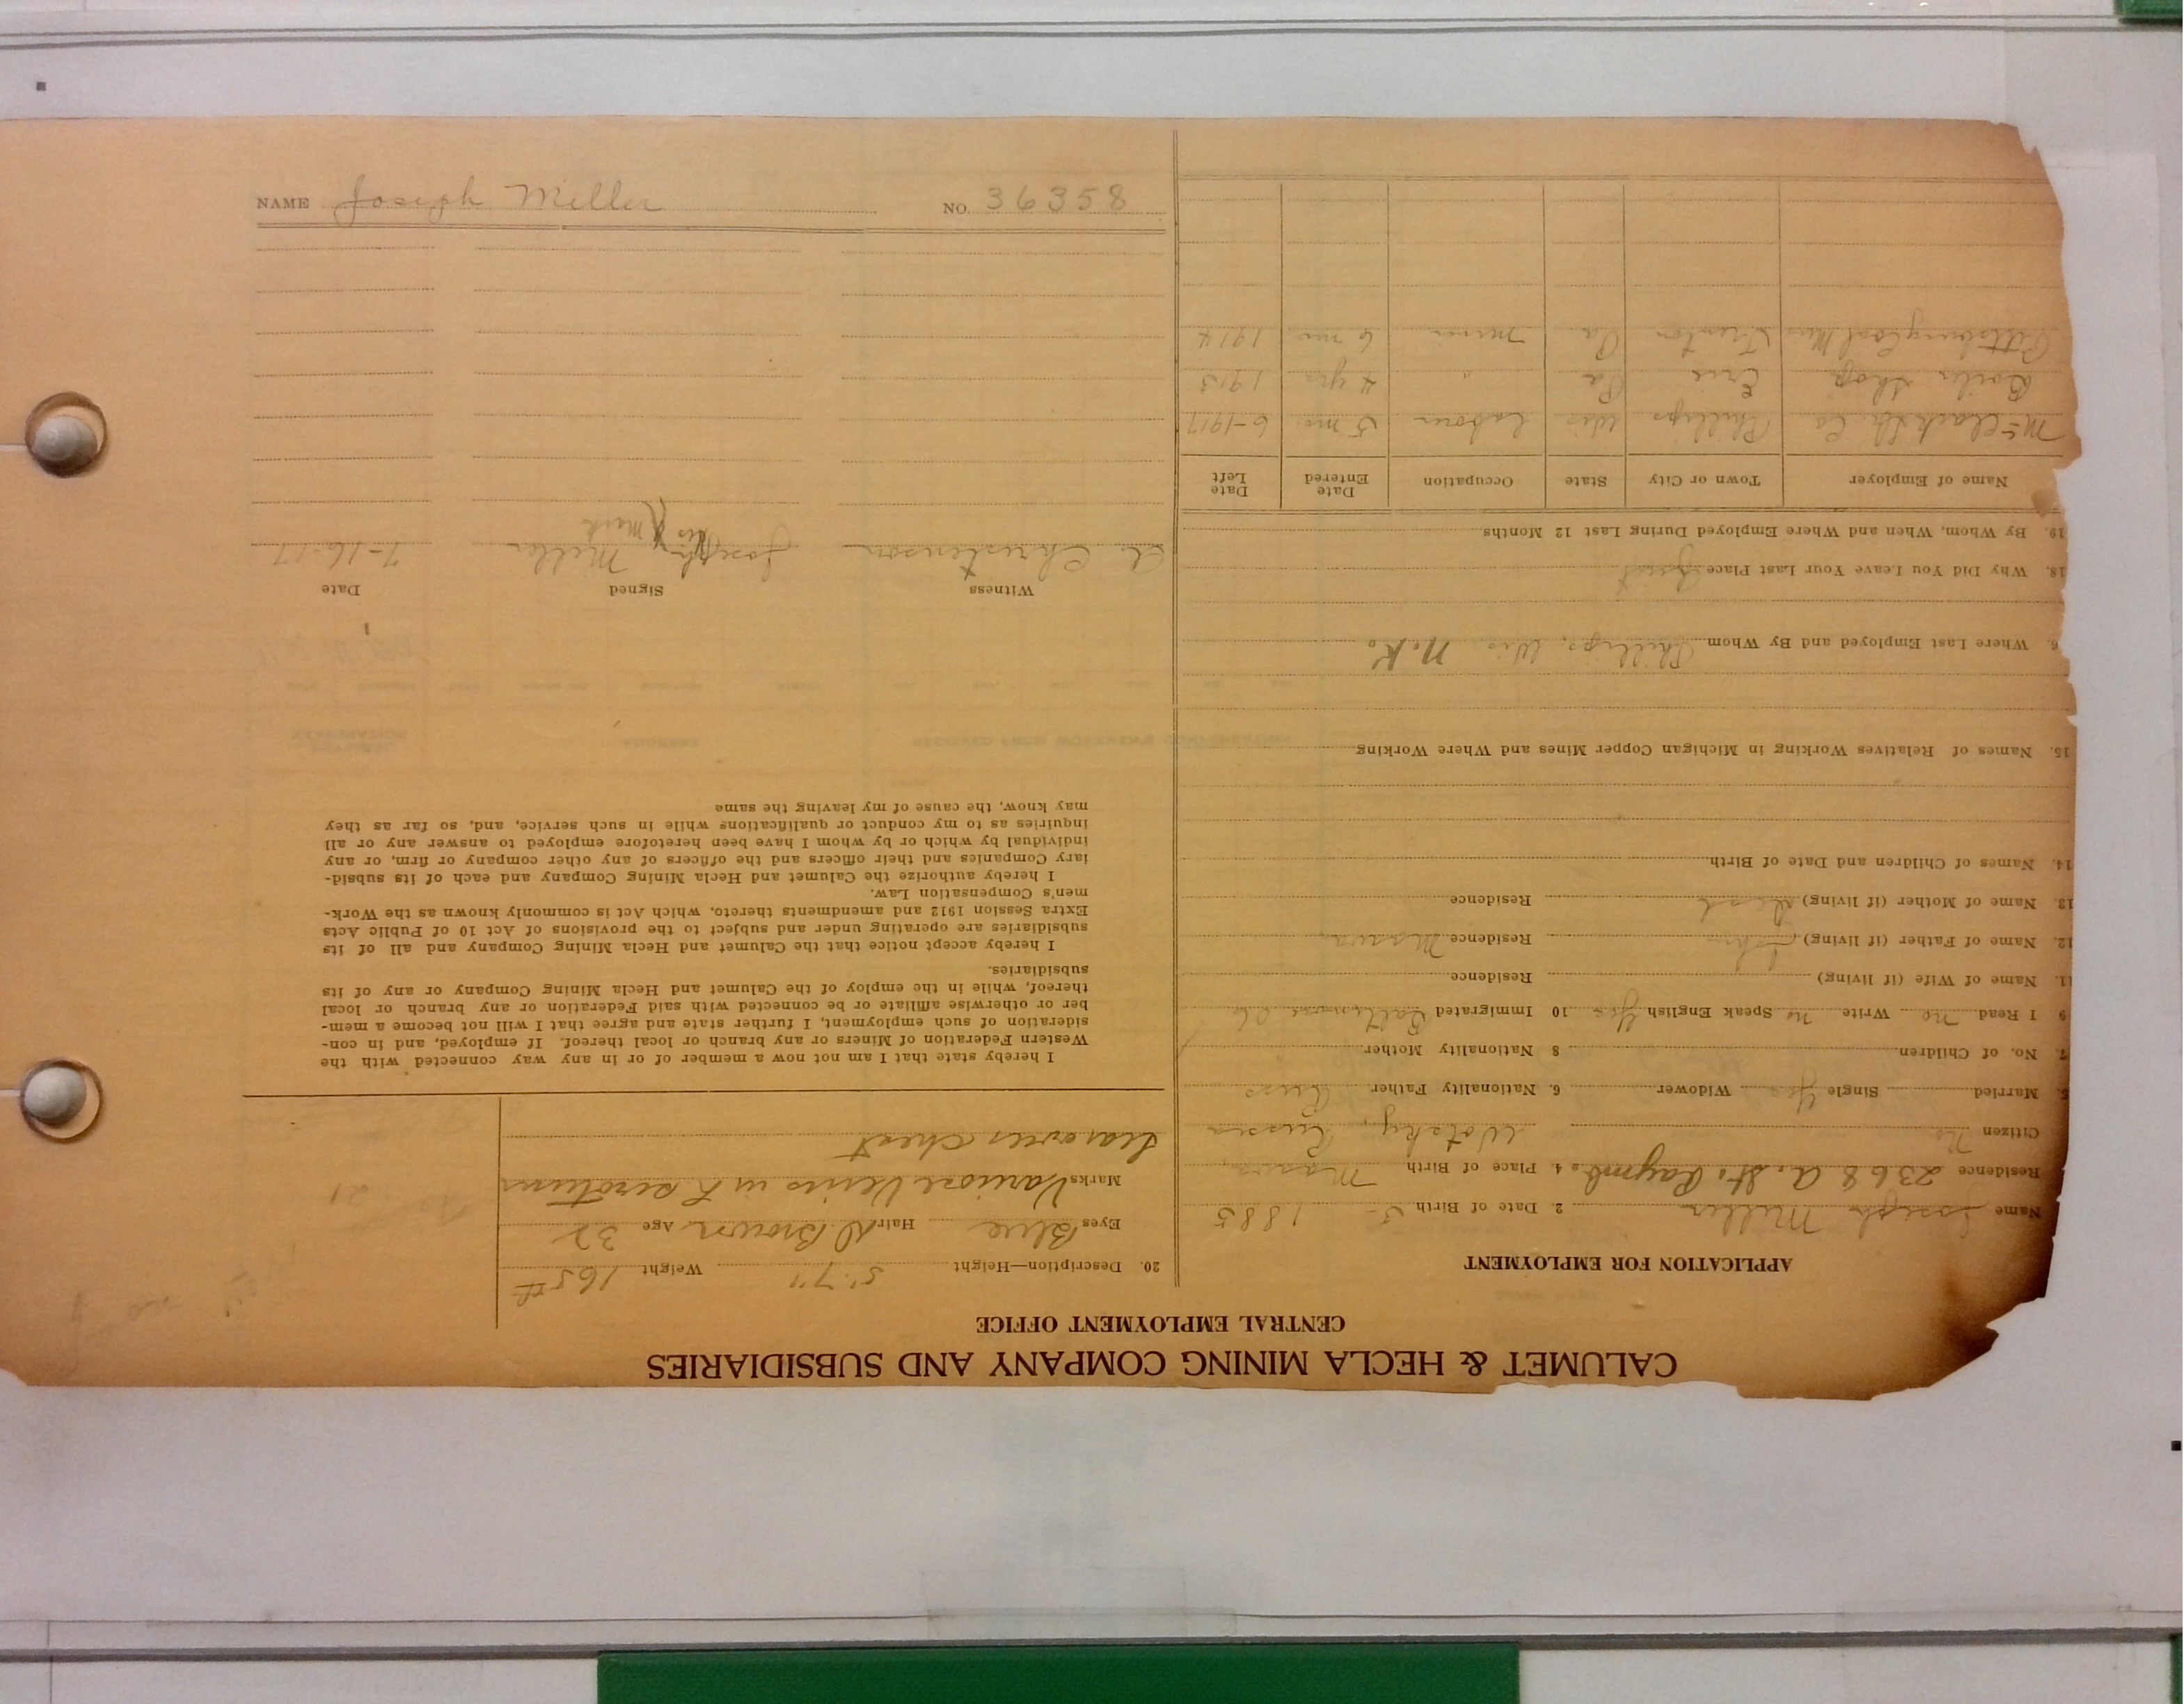 CALUMET & HECLA MINING COMPANY AND SUBSIDIARIES
CENTRAL EMPLOYMENT OFFICE
APPLICATION FOR EMPLOYMENT
Name Joseph Miller 2. Date of Birth 5- 1885
Residence 2368 A. St. Raymb. 4. Place of Birth
Citizen No Russia
5. Married Single Yes Widower 6. Nationality Father Russ
7. No. of Children 8 Nationality Mother
9 I Read no Write no Speak English Yes 10 Immigrated Baltimore 06
11. Name of Wife (if living) Residence
12. Name of Father (if living) John Residence
13. Name of Mother (if living) dead Residence
14. Names of Children and Date of Birth
15. Names of Relatives Working in Michigan Copper Mines and Where Working
6. Where Last Employed and By Whom Phillips, Wis N.K.
18. Why Did You Leave Your Last Place Quit
19. By Whom, When and Where Employed During Last 12 Months
Name of Employer Town or City State Occupation Date Entered Date Left
Co Phillips Wis Labour 5 mo. 6-1917
Boiler Shop Erie Pa " 4 yrs 1913
Pittsburg Coal Trenton Pa Miner 6 mo 1914
20. Description—Height 5'7" Weight 165#
Eyes Blue Hair D Brown Age 32
Marks Varicose Veins in L scrotum
Scar over chest
I hereby state that I am not now a member of or in any way connected with the
Western Federation of Miners or any branch or local thereof. If employed, and in con-
sideration of such employment, I further state and agree that I will not become a mem-
ber or otherwise affiliate or be connected with said Federation or any branch or local
thereof, while in the employ of the Calumet and Hecla Mining Company or any of its
subsidiaries.
I hereby accept notice that the Calumet and Hecla Mining Company and all of its
subsidiaries are operating under and subject to the provisions of Act 10 of Public Acts
Extra Session 1912 and amendments thereto, which Act is commonly known as the Work-
men's Compensation Law.
I hereby authorize the Calumet and Hecla Mining Company and each of its subsid-
iary Companies and their officers and the officers of any other company or firm, or any
individual by which or by whom I have been heretofore employed to answer any or all
inquiries as to my conduct or qualifications while in such service, and, so far as they
may know, the cause of my leaving the same
Witness Signed Date
C. Christenson Joseph his X mark Miller 7-16-17
NAME Joseph Miller NO. 36358